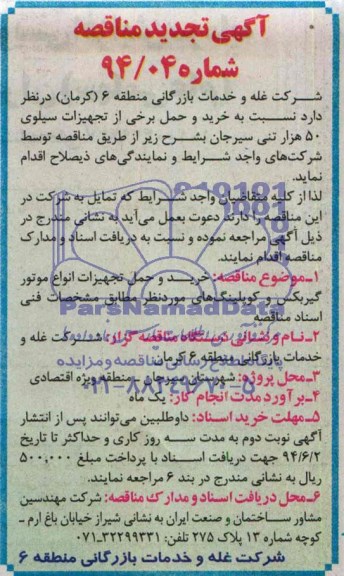 آگهی تجدید مناقصه
شماره ۹۴/۰۴
شرکت غله و خدمات بازرگانی منطقه ۶ (کرمان) درنظر
دارد نسبت به خرید و حمل برخی از تجهیزات سیلوی
۵۰ هزار تنی سیرجان بشرح زیر از طریق مناقصه توسط
شرکت‌های واجد شرایط و نمایندگی‌های ذیصلاح اقدام
نماید.
لذا از کلیه متقاضیان واجد شرایط که تمایل به شرکت در
این مناقصه را دارند دعوت بعمل می‌آید به نشانی مندرج در
ذیل آگهی مراجعه نموده و نسبت به دریافت اسناد و مدارک
مناقصه اقدام نمایند.
۱ـ موضوع مناقصه: خرید و حمل تجهیزات انواع موتور
گیربکس و کوپلینگ‌های موردنظر مطابق مشخصات فنی
اسناد مناقصه
ParsNamadData
۲ـ نام و نشانی دستگاه مناقصه گزار: شرکت غله و
خدمات بازرگانی منطقه ۶ کرمان
پایگاه اطلاع رسانی مناقصه و مزایده
۳ـ محل پروژه: شهرستان سیرجان ـ منطقه ویژه اقتصادی
۰۲۱-۸۸۳۴۹۶۷۰-۵
۴ـ برآورد مدت انجام کار: یک ماه
۵ـ مهلت خرید اسناد: داوطلبین می‌توانند پس از انتشار
آگهی نوبت دوم به مدت سه روز کاری و حداکثر تا تاریخ
۹۴/۶/۲ جهت دریافت اسناد با پرداخت مبلغ ۵۰۰,۰۰۰
ریال به نشانی مندرج در بند ۶ مراجعه نمایند.
۶ـ محل دریافت اسناد و مدارک مناقصه: شرکت مهندسین
مشاور ساختمان و صنعت ایران به نشانی شیراز خیابان باغ ارم ـ
کوچه شماره ۱۳ پلاک ۲۷۵ تلفن: ۳۲۲۹۹۳۳۱-۰۷۱
شرکت غله و خدمات بازرگانی منطقه ۶